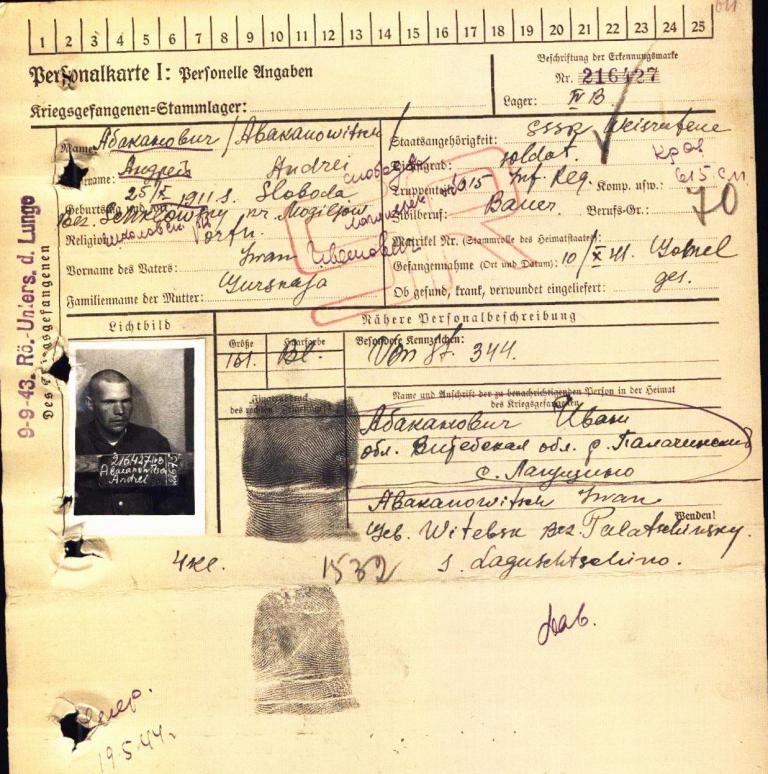 1 2 3 4 5 6 7 8 9 10 11 12 13 14 15 16 17 18 19 20 21 22 23 24 25
Personalkarte I: Personelle Angaben
Beschriftung der Erkennungsmarke
Nr. 216427
Kriegsgefangenen=Stammlager:
Lager: IV B
Name: Абаканович / Abakanowitsch
Staatsangehörigkeit: SSSR
Андрей Andrei
soldat.
25/IX 1911 S. Sloboda
слобода
Truppenteil: 615 Inf Reg. Komp. usw.: 615 с.п.
nr. Mogiljow
Zivilberuf: Bauer Berufs-Gr.: 70
Religion: ortn.
Matrikel Nr. (Stammrolle des Heimatstaates):
Vorname des Vaters: Iwan Иванович
Gefangennahme (Ort und Datum): 10/X 41.
Familienname der Mutter: Gurskaja
Ob gesund, krank, verwundet eingeliefert: ges.
Lichtbild
Nähere Personalbeschreibung
Größe Haarfarbe Besondere Kennzeichen:
161. Bl. Von St. 344.
Fingerabdruck
des rechten Zeigefingers
Name und Anschrift der zu benachrichtigenden Person in der Heimat
des Kriegsgefangenen
Абаканович Иван
обл. Витебская обл. р. Палачинский
с. Лагущино
Abakanowitsch Iwan
Wenden!
Geb. Witebsk Bez Palatschinsky.
S. Laguschtschino.
216427 IVB
Andrei
4 кл.
1532
9-9-43. Rö. Unters. d. Lunge
Des Kriegsgefangenen
19.5.44.